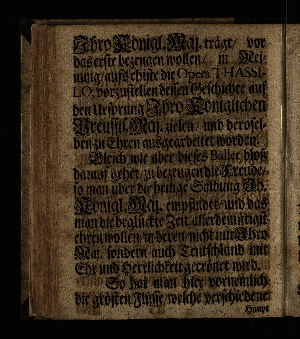 Ihro Königl. Maj. trägt/ vor
das erste bezeugen wollen/ in Mei-
nung/ aufs ehiste die Opera THASSI-
LO, vorzustellen dessen Geschichte auf
den Ursprung Ihro Königlichen
Preussis. Maj. zielen/ und derosel-
ben zu Ehren ausgearbeitet worden.
Gleich wie aber dieses Ballet bloß
darauf gehet/ zu bezeugen die Freude/
so man über die heilige Salbung Ih.
Königl. Maj. empfindet/ und das
man die beglückte Zeit allerdemühtigst
ehren wollen/ in deren nicht nur Ihro
Maj. sondern auch Teutschland mit
Ehr und Herrlichkeit gecrönet wird.
So hat man hier vornemlich
die grösten Flüsse/ welche verschiedene
Haupt